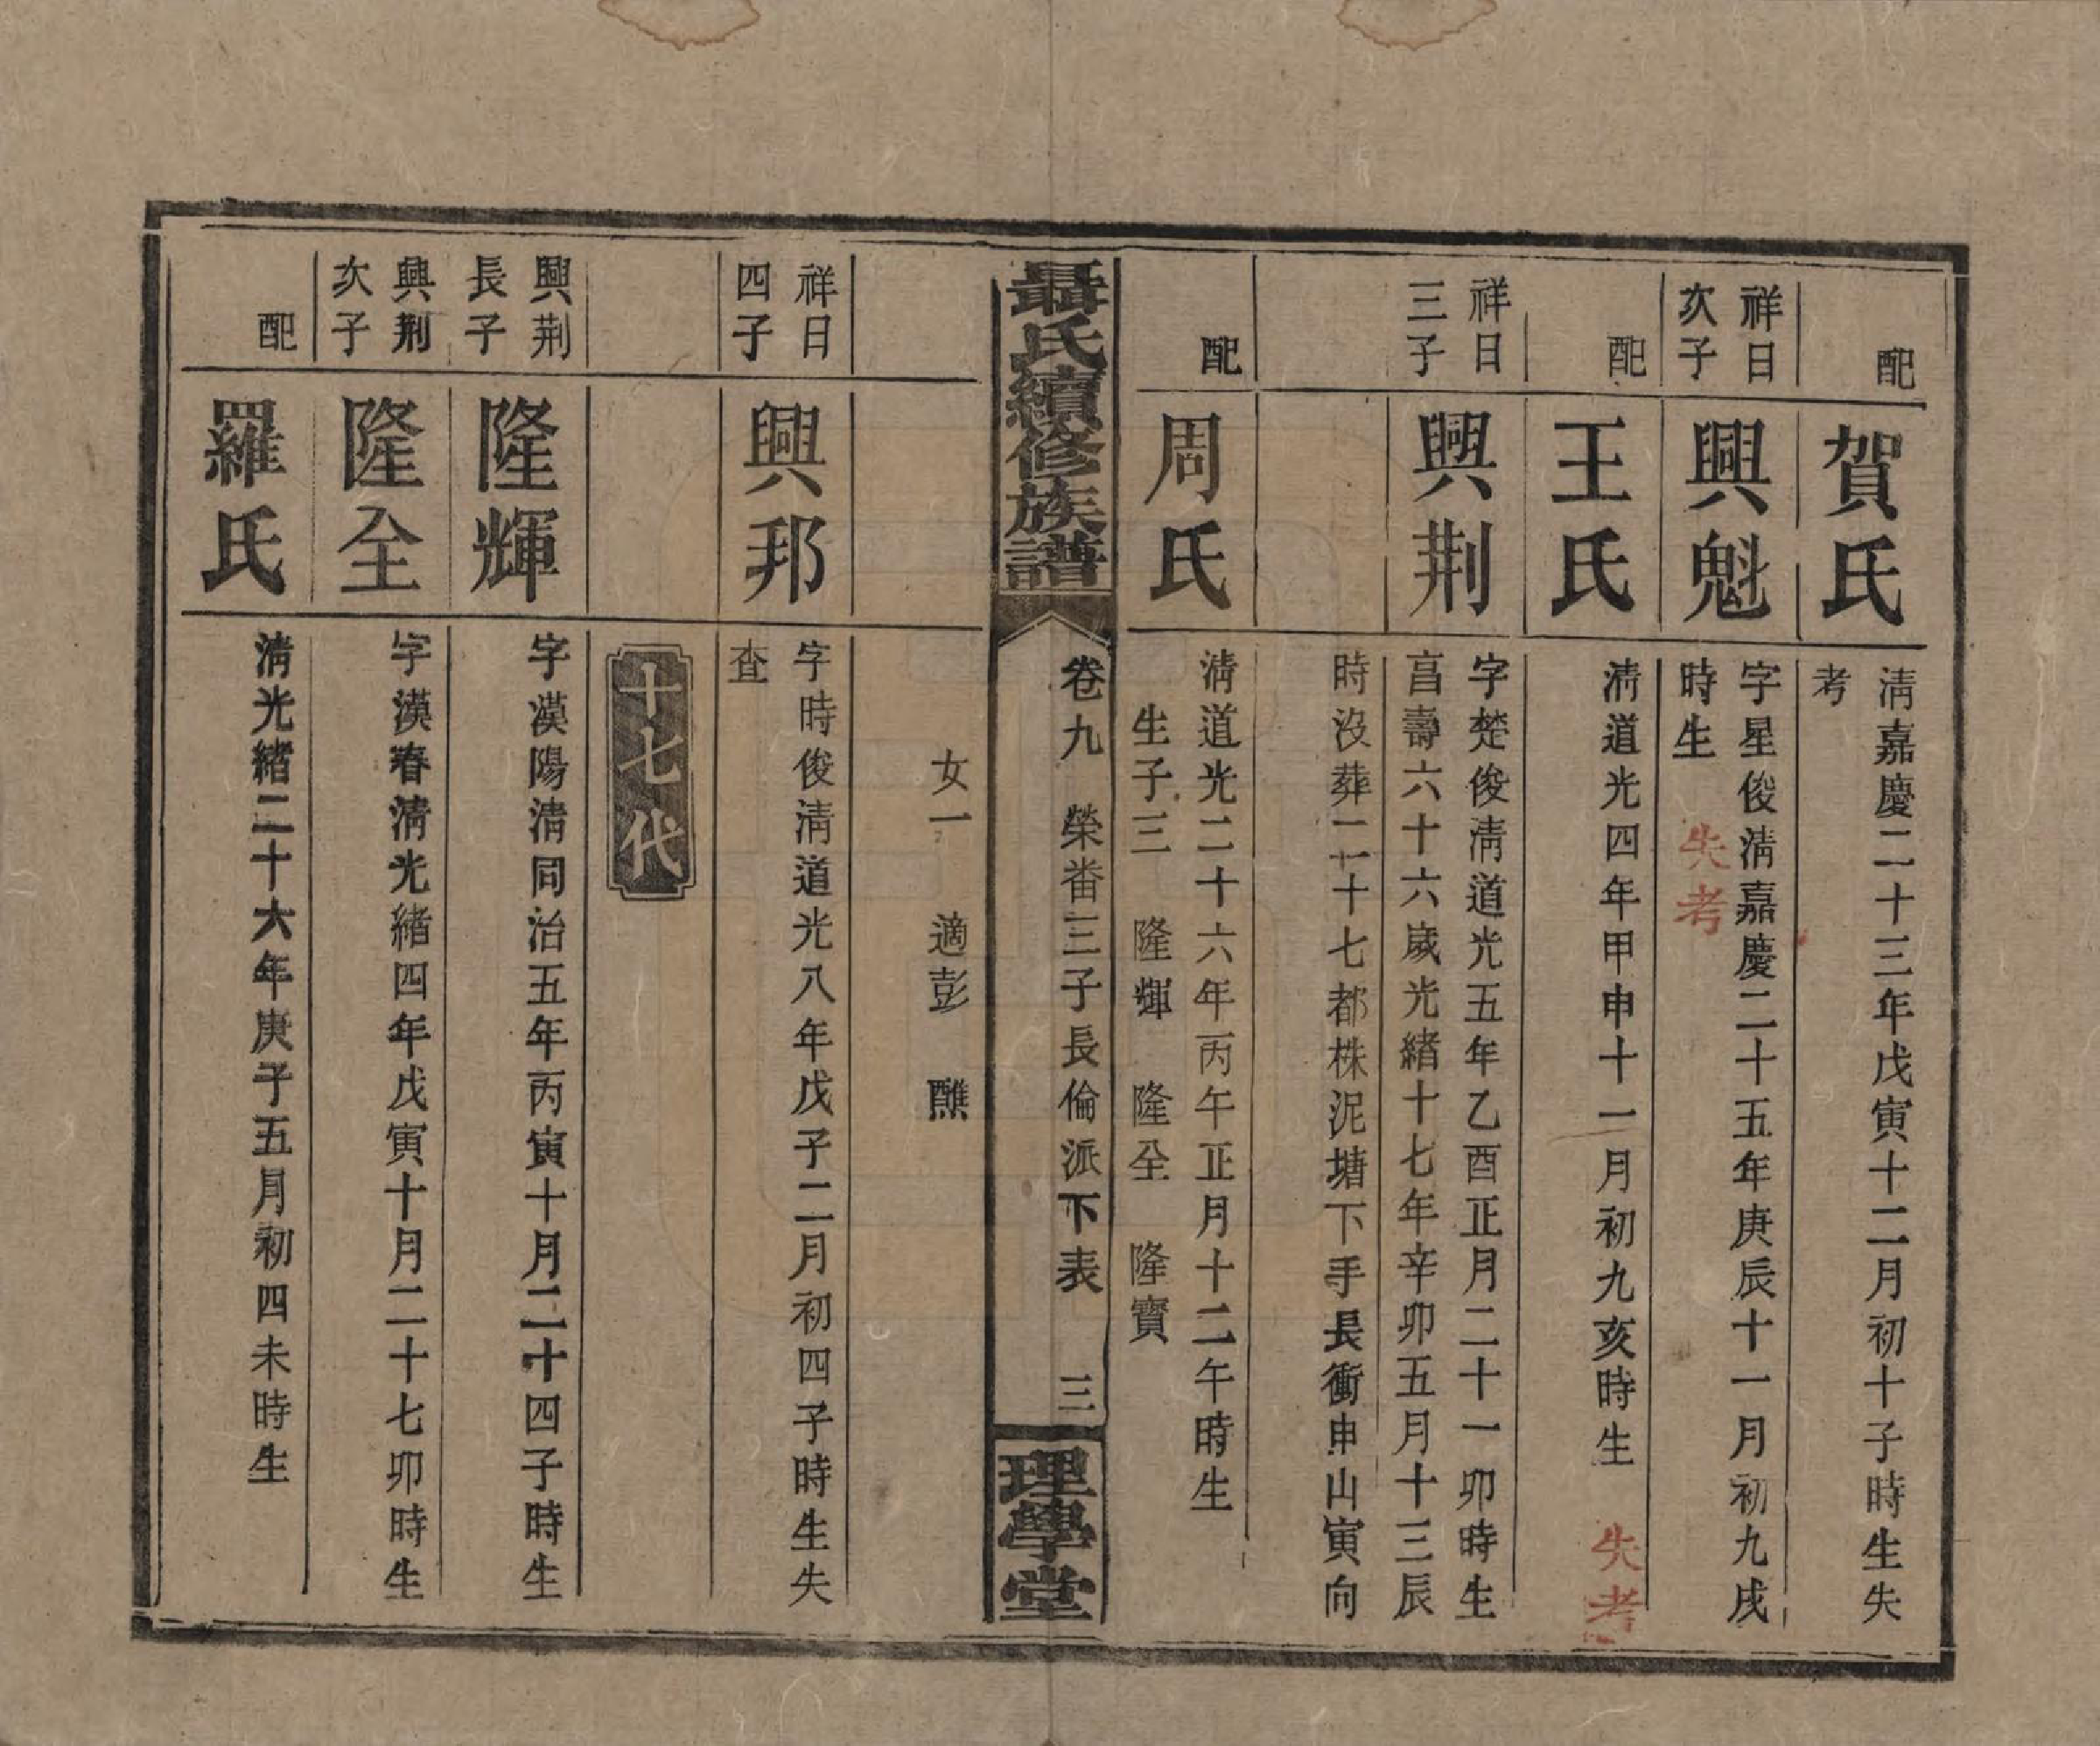 配
賀氏
淸嘉慶二十三年戊寅十二月初十子時生失
考
祥日
次子
興魁
字星俊淸嘉慶二十五年庚辰十一月初九戌
時生 失考
配
王氏
淸道光四年甲申十一月初九亥時生 失考
祥日
三子
興荆
字楚俊淸道光五年乙酉正月二十一卯時生
享壽六十六歲光緖十七年辛卯五月十三辰
時沒葬二十七都株泥塘下手長衝申山寅向
配
周氏
淸道光二十六年丙午正月十二午時生
生子三 隆輝 隆全 隆寶
聶氏續修族譜
卷九 榮畨三子長倫派下表 三
理學堂
女一 適彭 醮
祥日
四子
興邦
字時俊淸道光八年戊子二月初四子時生失
查
十七代
興荆
長子
隆輝
字漢陽淸同治五年丙寅十月二十四子時生
興荆
次子
隆全
字漢春淸光緖四年戊寅十月二十七卯時生
配
羅氏
淸光緖二十六年庚子五月初四未時生